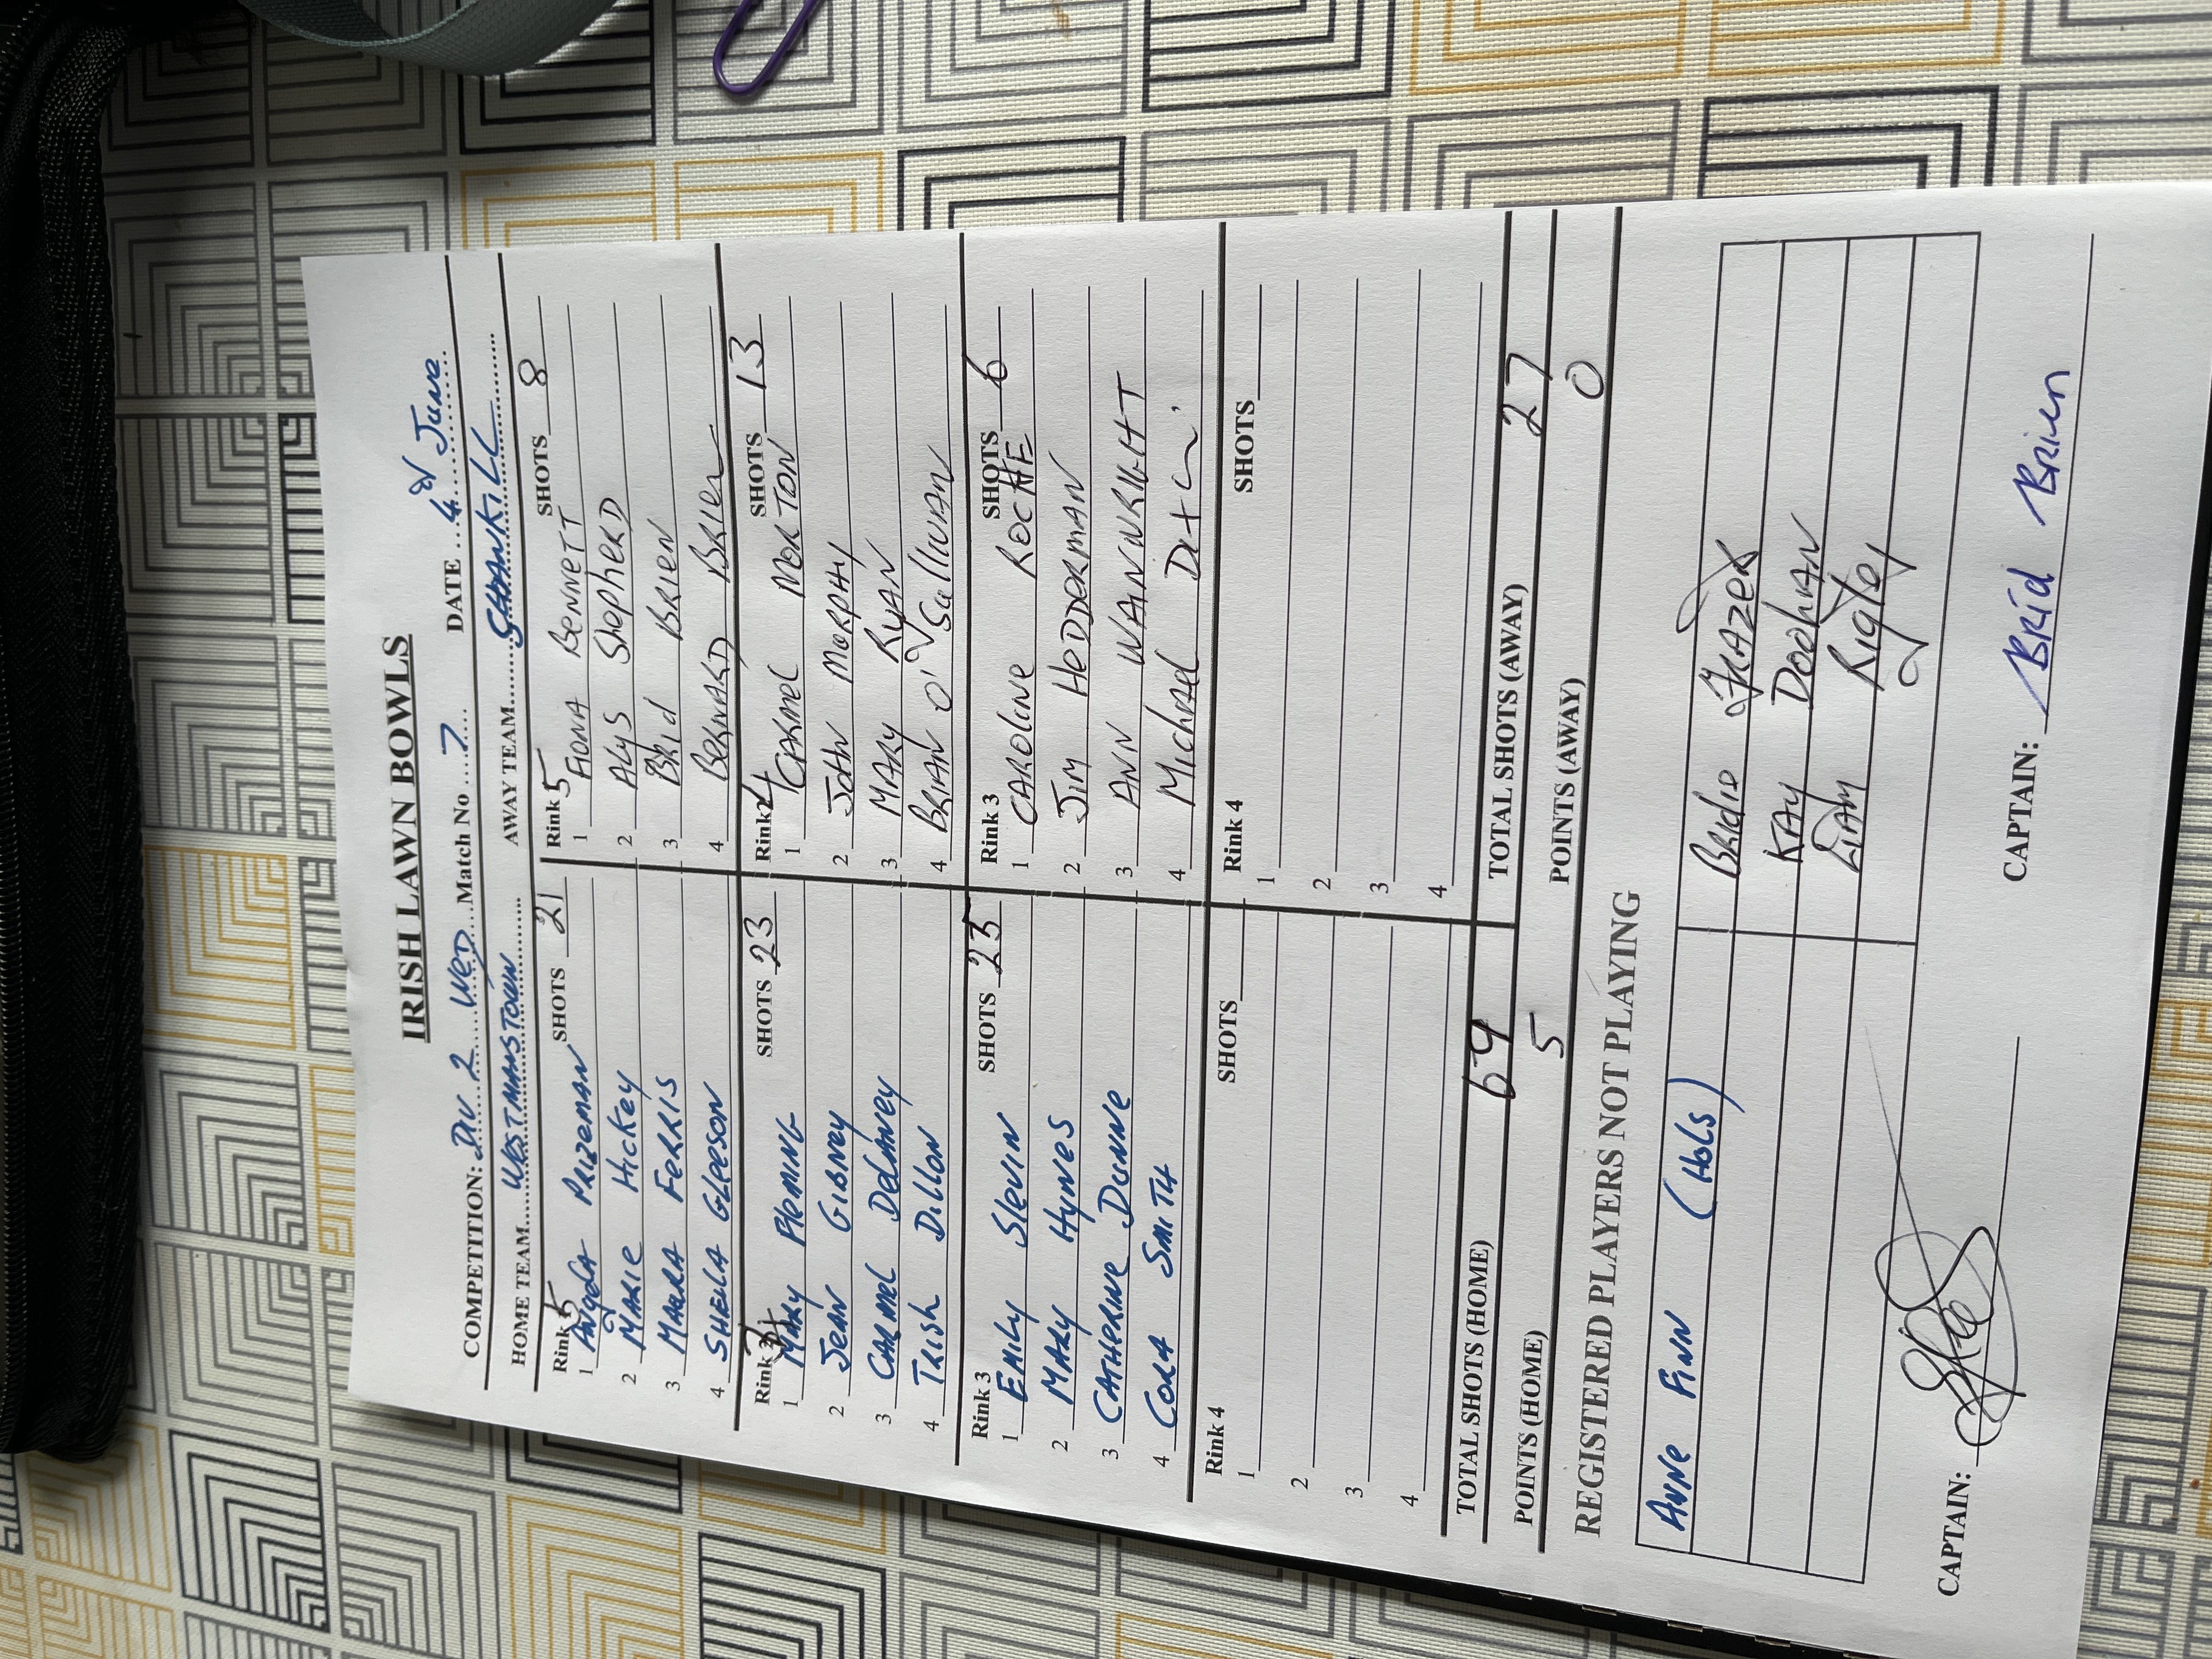 IRISH LAWN BOWLS
COMPETITION: DIV 2 WED Match No 7 DATE 4th June
HOME TEAM WESTMANSTOWN AWAY TEAM SHANKILL
Rink 5 SHOTS 21 Rink 5 SHOTS 8
1 ANgelA PRIZEMAN 1 FIONA BENNETT
2 MARIE HICKEY 2 Alys Shepherd
3 MAURA FERRIS 3 BRId BRIEN
4 SHEILA GLEESON 4 BERNARD BRIEN
Rink SHOTS 23 Rink 4 SHOTS 13
1 MARY FLEMING 1 CARMEL MORTON
2 JEAN GIBNEY 2 JOHN MURPHY
3 CARMEL DELANEY 3 MARY RYAN
4 TRISH DILLON 4 BRIAN O'SullIVAN
Rink 3 SHOTS 25 Rink 3 SHOTS 6
1 EMILY SLEVIN 1 CAROLINE ROCHE
2 MARY HYNES 2 JIM HEDDERMAN
3 CATHERINE DUNNE 3 ANN WAINWRIGHT
4 CORA SMITH 4 MichAEl
Rink 4 SHOTS Rink 4 SHOTS
1 1
2 2
3 3
4 4
TOTAL SHOTS (HOME) 69 TOTAL SHOTS (AWAY) 27
POINTS (HOME) 5 POINTS (AWAY) 0
REGISTERED PLAYERS NOT PLAYING
ANNE FINN (HOLS) BRIdIE FRAZER
KAY DOOHAN
LIAM RIgNey
CAPTAIN: CAPTAIN: BRId BRIEN